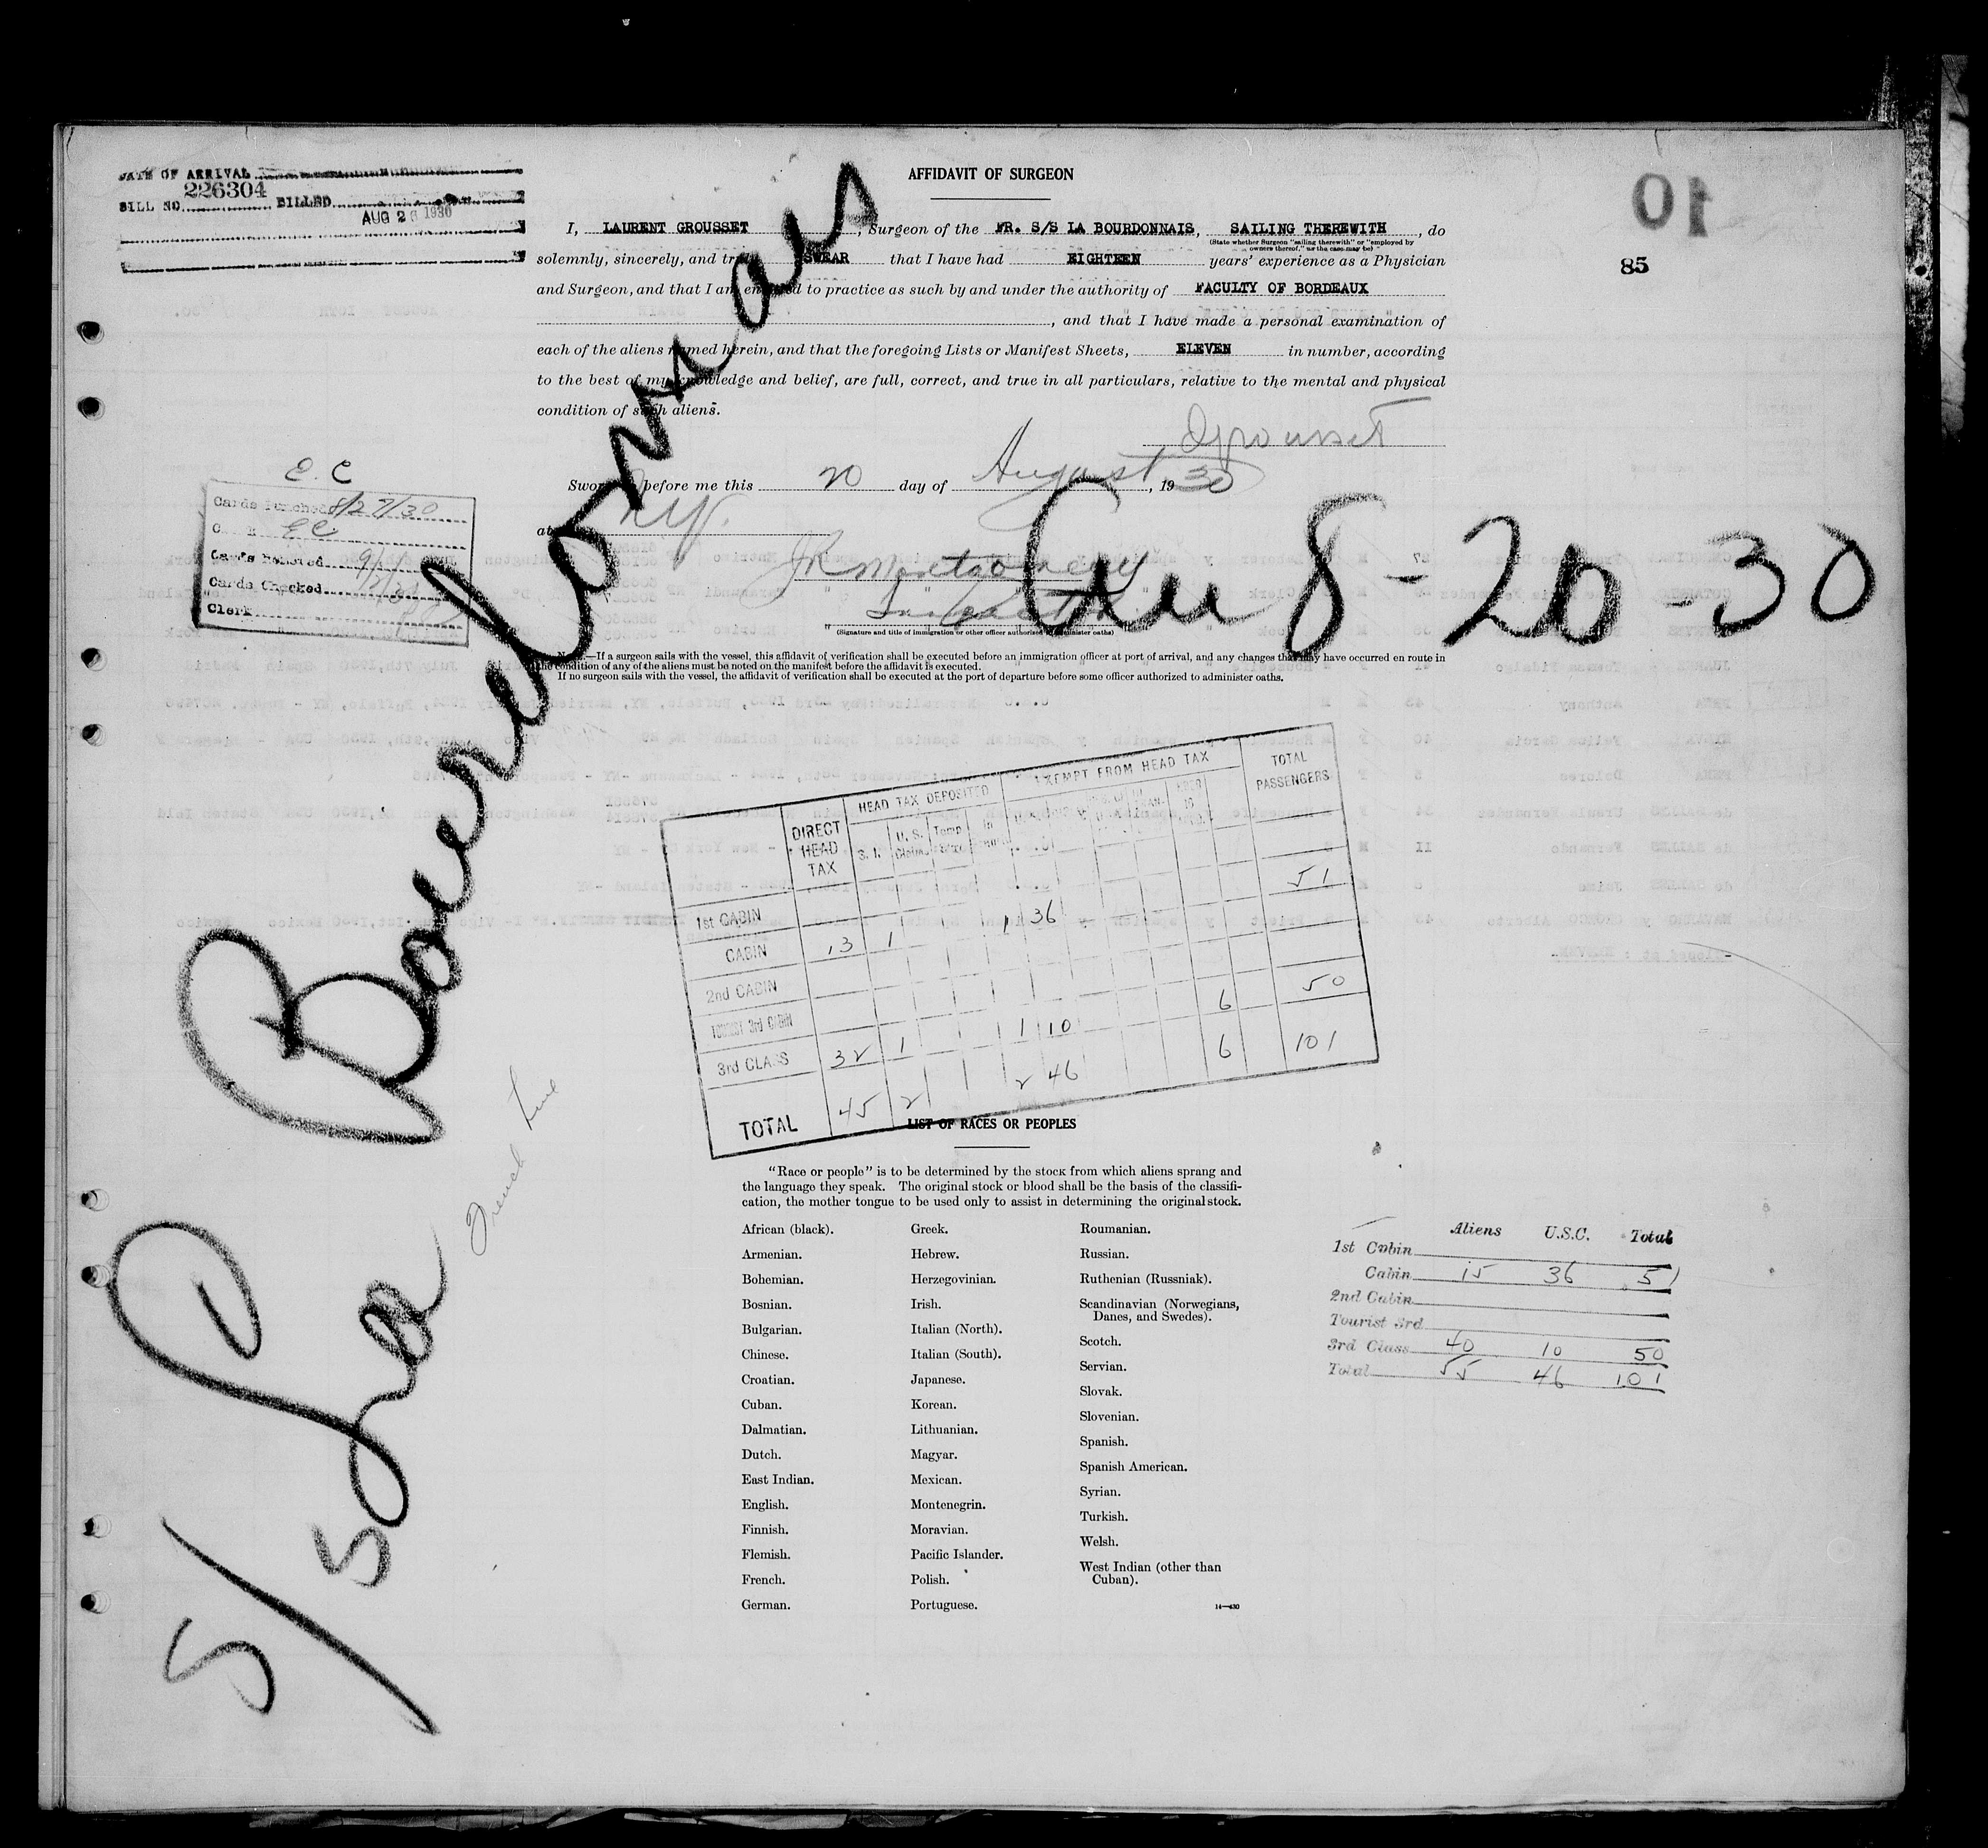 DATE OF ARRIVAL
BILL NO. 226304 BILLED
AUG 26 1930
AFFIDAVIT OF SURGEON
10
85
I, LAURENT GROUSSET, Surgeon of the FR. S/S LA BOURDONNAIS, SAILING THEREWITH, do
(State whether Surgeon "sailing therewith" or "employed by
owners thereof," as the case may be)
solemnly, sincerely, and truly SWEAR that I have had EIGHTEEN years' experience as a Physician
and Surgeon, and that I am entitled to practice as such by and under the authority of FACULTY OF BORDEAUX
, and that I have made a personal examination of
each of the aliens named herein, and that the foregoing Lists or Manifest Sheets, ELEVEN in number, according
to the best of my knowledge and belief, are full, correct, and true in all particulars, relative to the mental and physical
condition of such aliens.
Grousset
Sworn before me this 20 day of August, 1930
at N.Y.
Inspector
(Signature and title of immigration or other officer authorized to administer oaths)
E. C
Cards Punched 8/27/30
EC
Cards Checked
Clerk
S/S La Bourdonnais
French Line
Au 8-20-30
NOTE.—If a surgeon sails with the vessel, this affidavit of verification shall be executed before an immigration officer at port of arrival, and any changes that may have occurred en route in
the condition of any of the aliens must be noted on the manifest before the affidavit is executed.
If no surgeon sails with the vessel, the affidavit of verification shall be executed at the port of departure before some officer authorized to administer oaths.
DIRECT HEAD TAX
HEAD TAX DEPOSITED
EXEMPT FROM HEAD TAX
TOTAL PASSENGERS
S. I.
1st CABIN
CABIN 13 1 1 36 51
2nd CABIN
TOURIST 3rd CABIN
3rd CLASS 32 1 1 10 6 50
TOTAL 45 2 2 46 6 101
LIST OF RACES OR PEOPLES
"Race or people" is to be determined by the stock from which aliens sprang and
the language they speak. The original stock or blood shall be the basis of the classifi-
cation, the mother tongue to be used only to assist in determining the original stock.
African (black).
Armenian.
Bohemian.
Bosnian.
Bulgarian.
Chinese.
Croatian.
Cuban.
Dalmatian.
Dutch.
East Indian.
English.
Finnish.
Flemish.
French.
German.
Greek.
Hebrew.
Herzegovinian.
Irish.
Italian (North).
Italian (South).
Japanese.
Korean.
Lithuanian.
Magyar.
Mexican.
Montenegrin.
Moravian.
Pacific Islander.
Polish.
Portuguese.
Roumanian.
Russian.
Ruthenian (Russniak).
Scandinavian (Norwegians,
Danes, and Swedes).
Scotch.
Servian.
Slovak.
Slovenian.
Spanish.
Spanish American.
Syrian.
Turkish.
Welsh.
West Indian (other than
Cuban).
14—430
Aliens U.S.C. Total
1st Cabin
Cabin 15 36 51
2nd Cabin
Tourist 3rd
3rd Class 40 10 50
Total 55 46 101